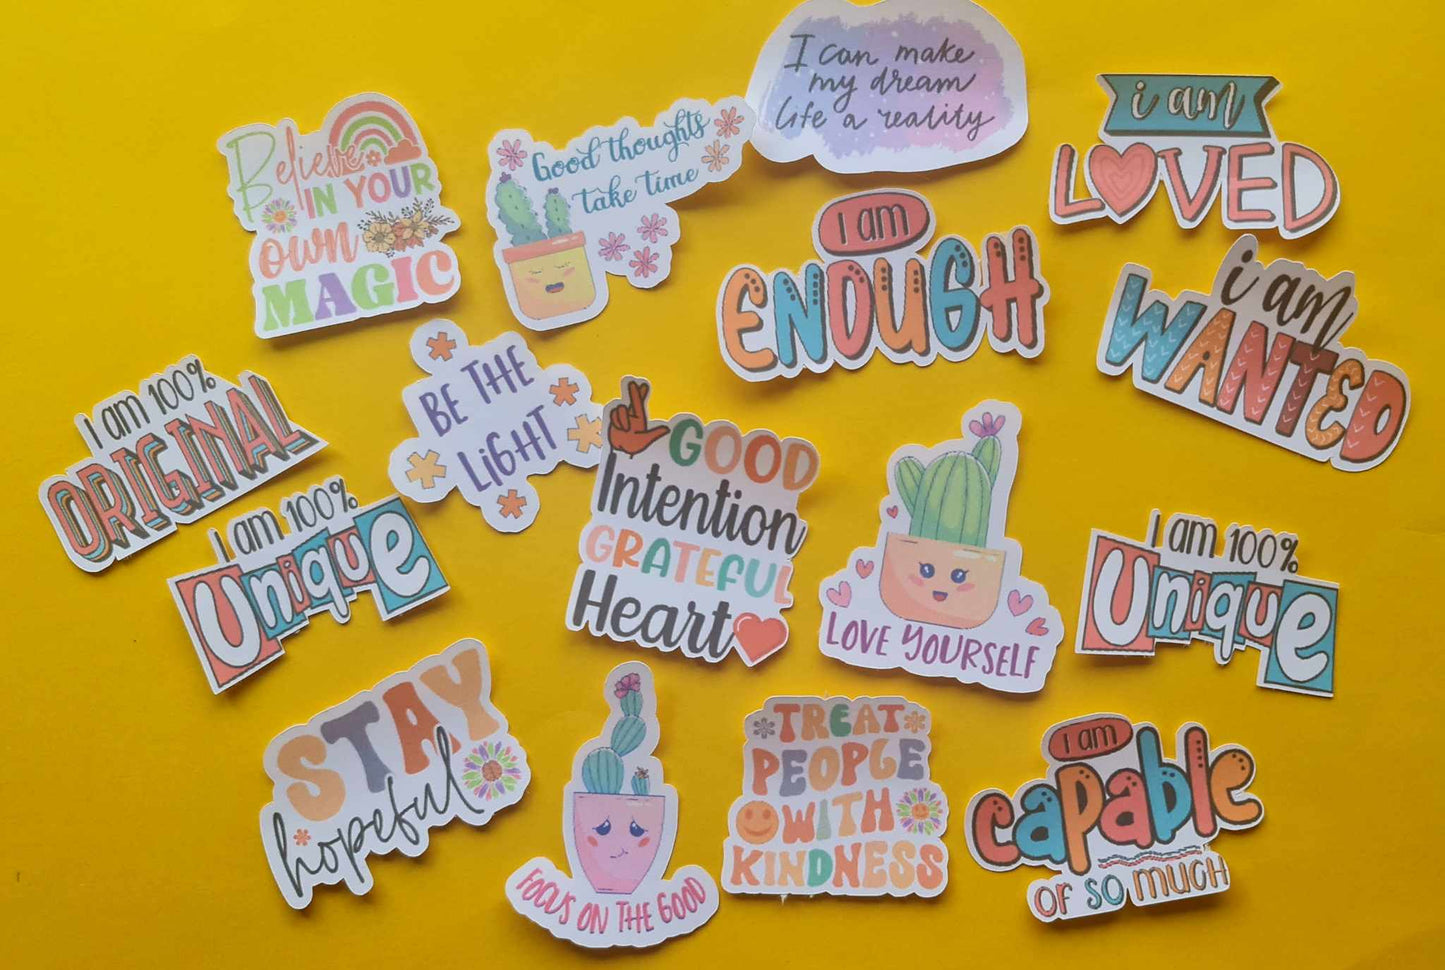 I can make
my dream
life a reality
i am
LOVED
Believe
IN YOUR
own
MAGIC
Good thoughts
take time
I am
ENOUGH
i am
WANTED
I am 100%
ORIGINAL
BE THE
LiGHT
GOOD
Intention
GRATEFUL
Heart
LOVE YOURSELF
I am 100%
UniquE
I am 100%
UniquE
STAY
hopeful
FOCUS ON THE GOOD
TREAT
PEOPLE
WITH
KINDNESS
I am
capable
OF SO MUCH